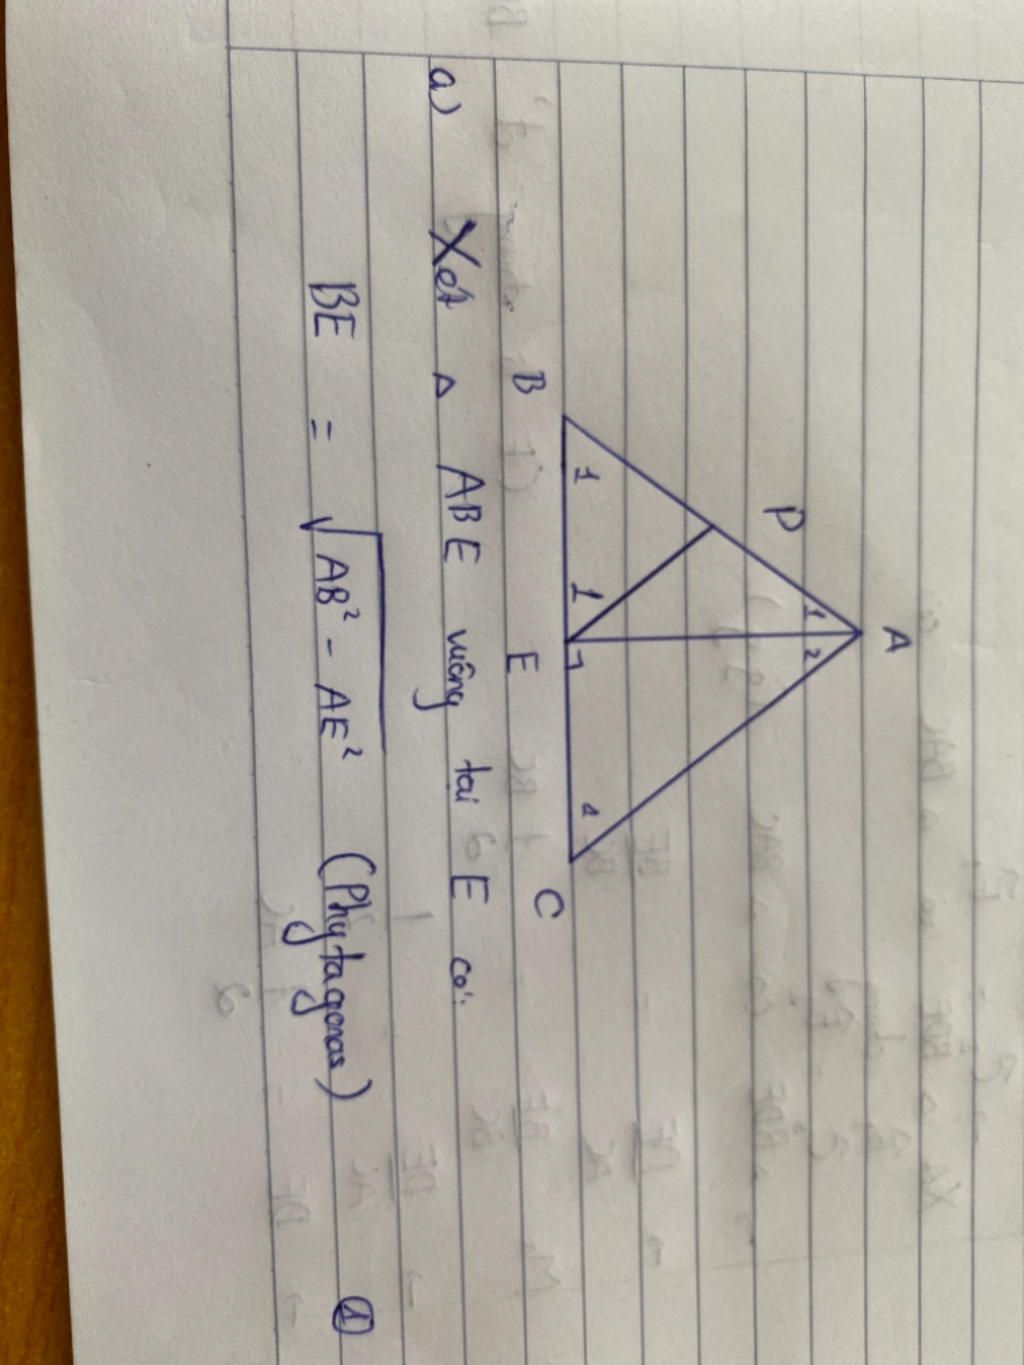 A
1 2
D
1 1 1
B E C
a) Xét △ ABE vuông tại E có:
BE = √AB² - AE² (Phytagoras) ①